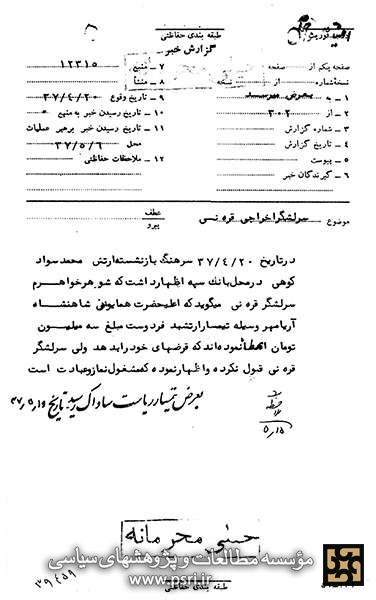 طبقه بندی حفاظتی
گزارش خبر
صفحه یکم از صفحه
نسخه شماره از نسخه
۱ - به بعرض میرسد
۲ - از ۳۰۲
۳ - شماره گزارش
۴ - تاریخ گزارش
۵ - پیوست
۶ - گیرندگان خبر
۷ - منبع ۱۲۳۱۵
۸ - منشأ
۹ - تاریخ وقوع ۳۷/۴/۲۰
۱۰ - تاریخ رسیدن خبر به منبع
۱۱ - تاریخ رسیدن خبر برهبر عملیات
محل ۳۷/۵/۶
۱۲ - ملاحظات حفاظتی
موضوع سرلشگر اخراجی قره نی
عطف
پیرو
در تاریخ ۳۷/۴/۲۰ سرهنگ بازنشسته ارتش محمد سواد
کوهی در محل بانک سپه اظهار داشت که شوهر خواهرم
سرلشگر قره نی میگوید که اعلیحضرت همایونی شاهنشاه
آریامهر وسیله تیمسار ارتشبد فردوست مبلغ سه میلیون
تومان اعطا نموده اند که قرضهای خود را بدهد ولی سرلشگر
قره نی قبول نکرده و اظهار نموده که مشغول نماز و عبادت است
بعرض تیمسار ریاست ساواک رسید تاریخ ۳۷/۵/۱۵
۵/۱۵
خیلی محرمانه
موسسه مطالعات و پژوهشهای سیاسی
www.psri.ir
طبقه بندی حفاظتی
۳۹۴۵۹